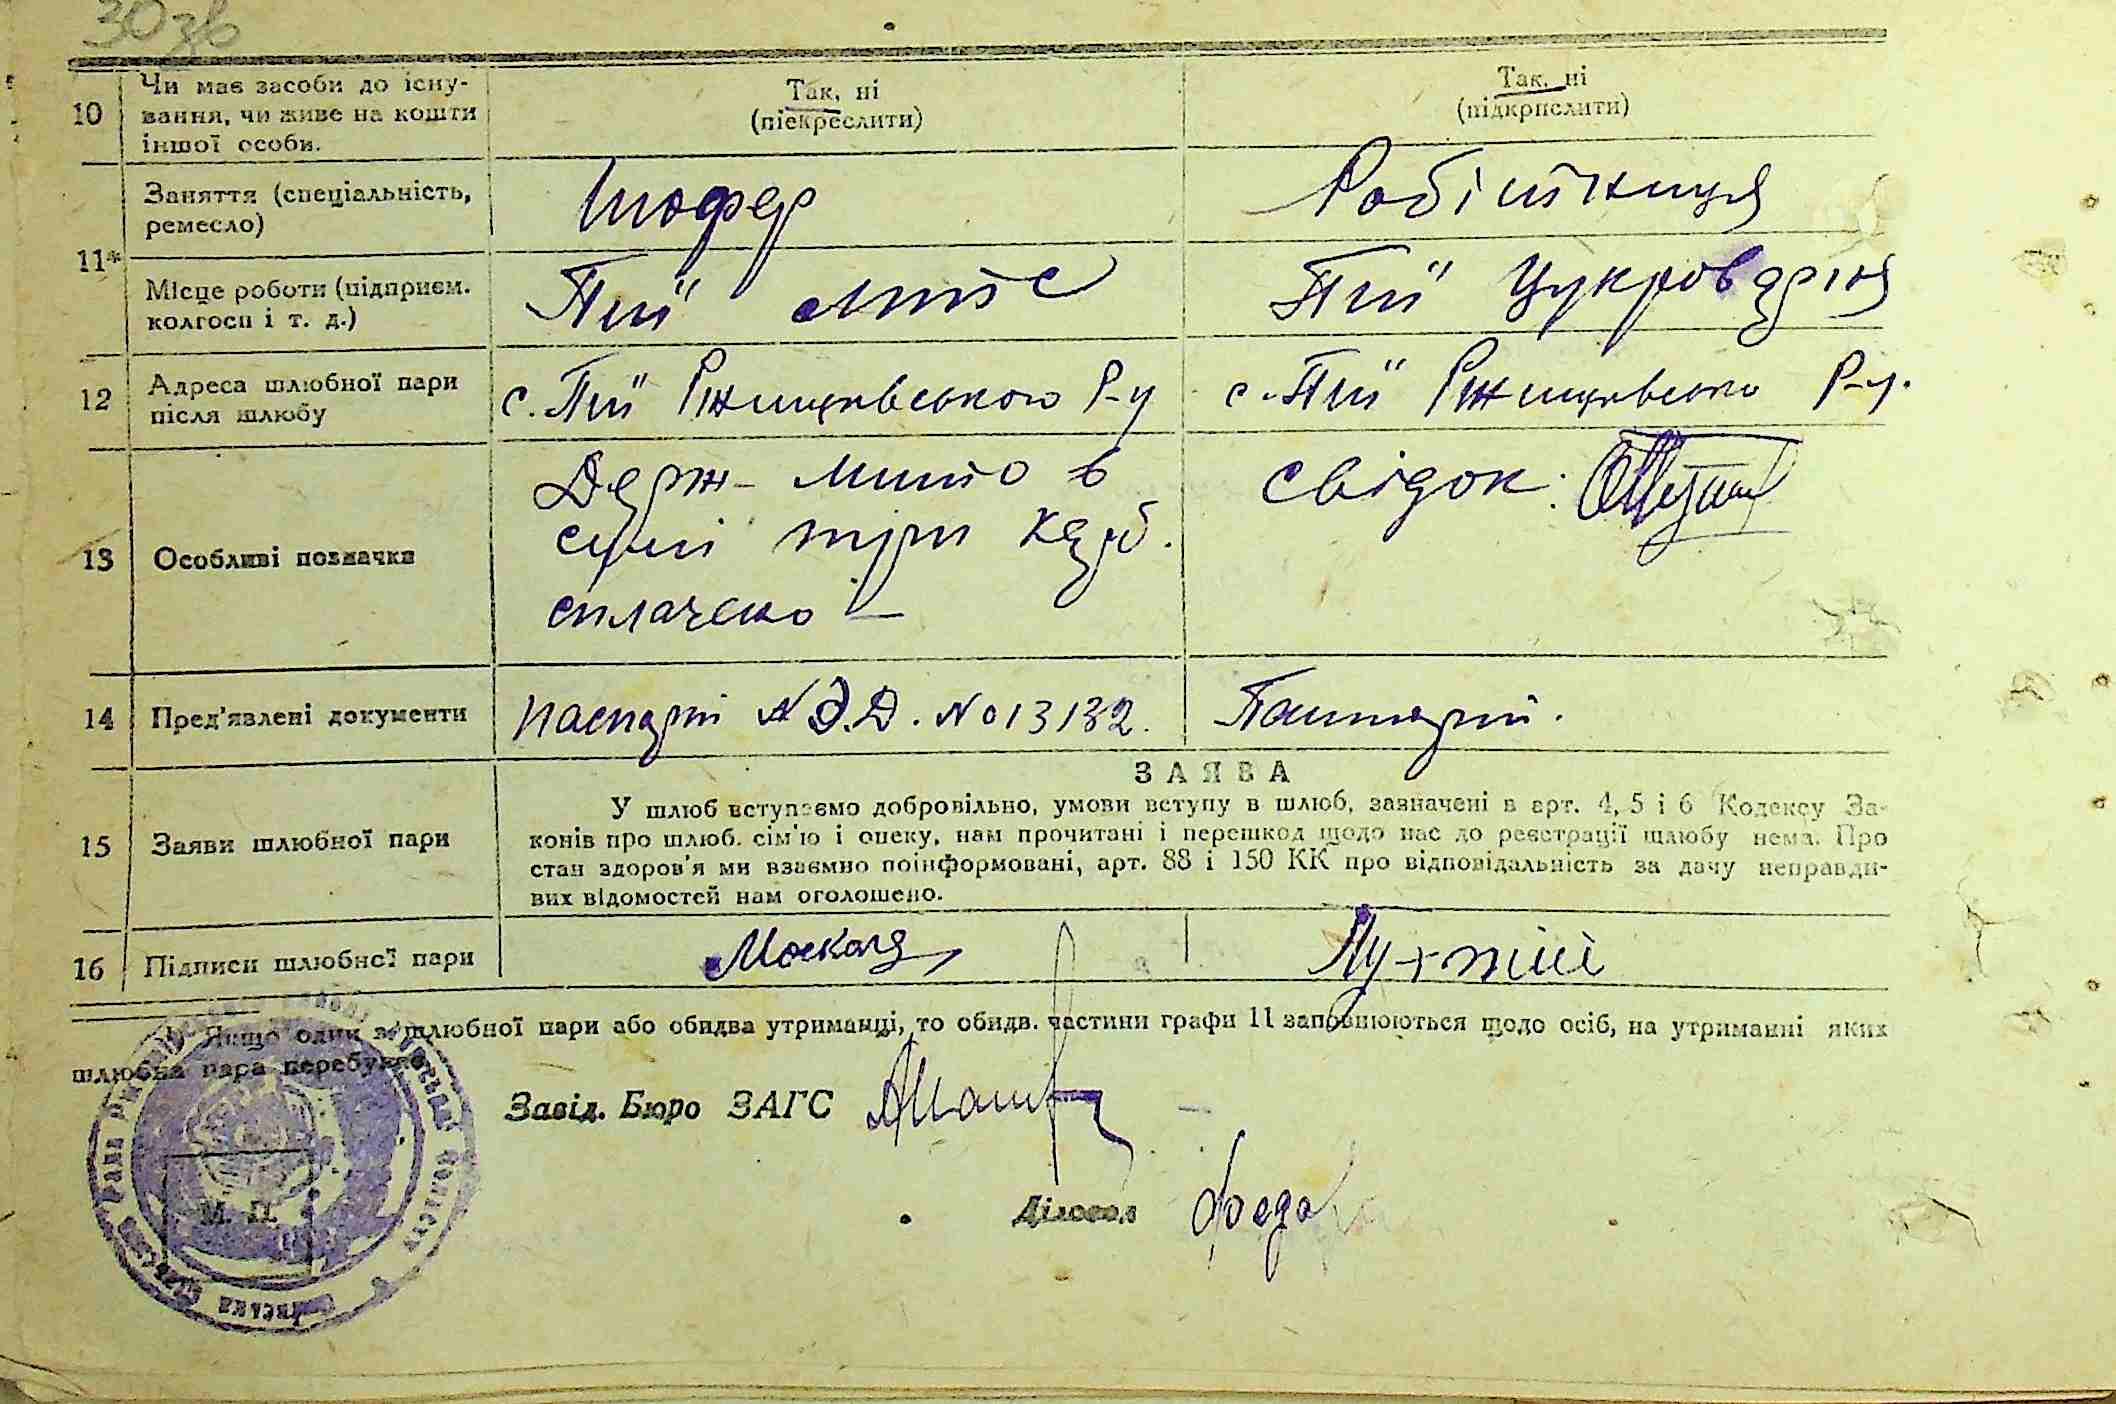 30 зв
10
Чи має засоби до існу-
вання, чи живе на кошти
іншої особи.
Так, ні
(піекреслити)
Так, ні
(підкрпслити)
11*
Заняття (спеціальність,
ремесло)
Шофер
Робітниця
Місце роботи (підприєм.
колгосп і т. д.)
Пії МТС
Пії Цукроврадгосп
12
Адреса шлюбної пари
після шлюбу
с. Пії Ржищівського Р-у
с. Пії Ржищівсько Р-у.
13
Особливі позначки
Держ- мито в
сумі три карб.
сплачено —
свідок:
14
Пред'явлені документи
паспорт № Э.Д. № 013132.
Пашпорт.
15
Заяви шлюбної пари
ЗАЯВА
У шлюб вступаємо добровільно, умови вступу в шлюб, зазначені в арт. 4, 5 і 6 Кодексу За-
конів про шлюб. сім'ю і опеку, нам прочитані і перешкод щодо нас до реєстрації шлюбу нема. Про
стан здоров'я ми взаємно поінформовані, арт. 88 і 150 КК про відповідальність за дачу неправди-
вих відомостей нам оголошено.
16
Підписи шлюбної пари
Якщо один з шлюбної пари або обидва утриманці, то обидв. частини графи 11 заповнюються щодо осіб, на утриманні яких
шлюбна пара перебуває.
Завід. Бюро ЗАГС
М. П.
Діловод